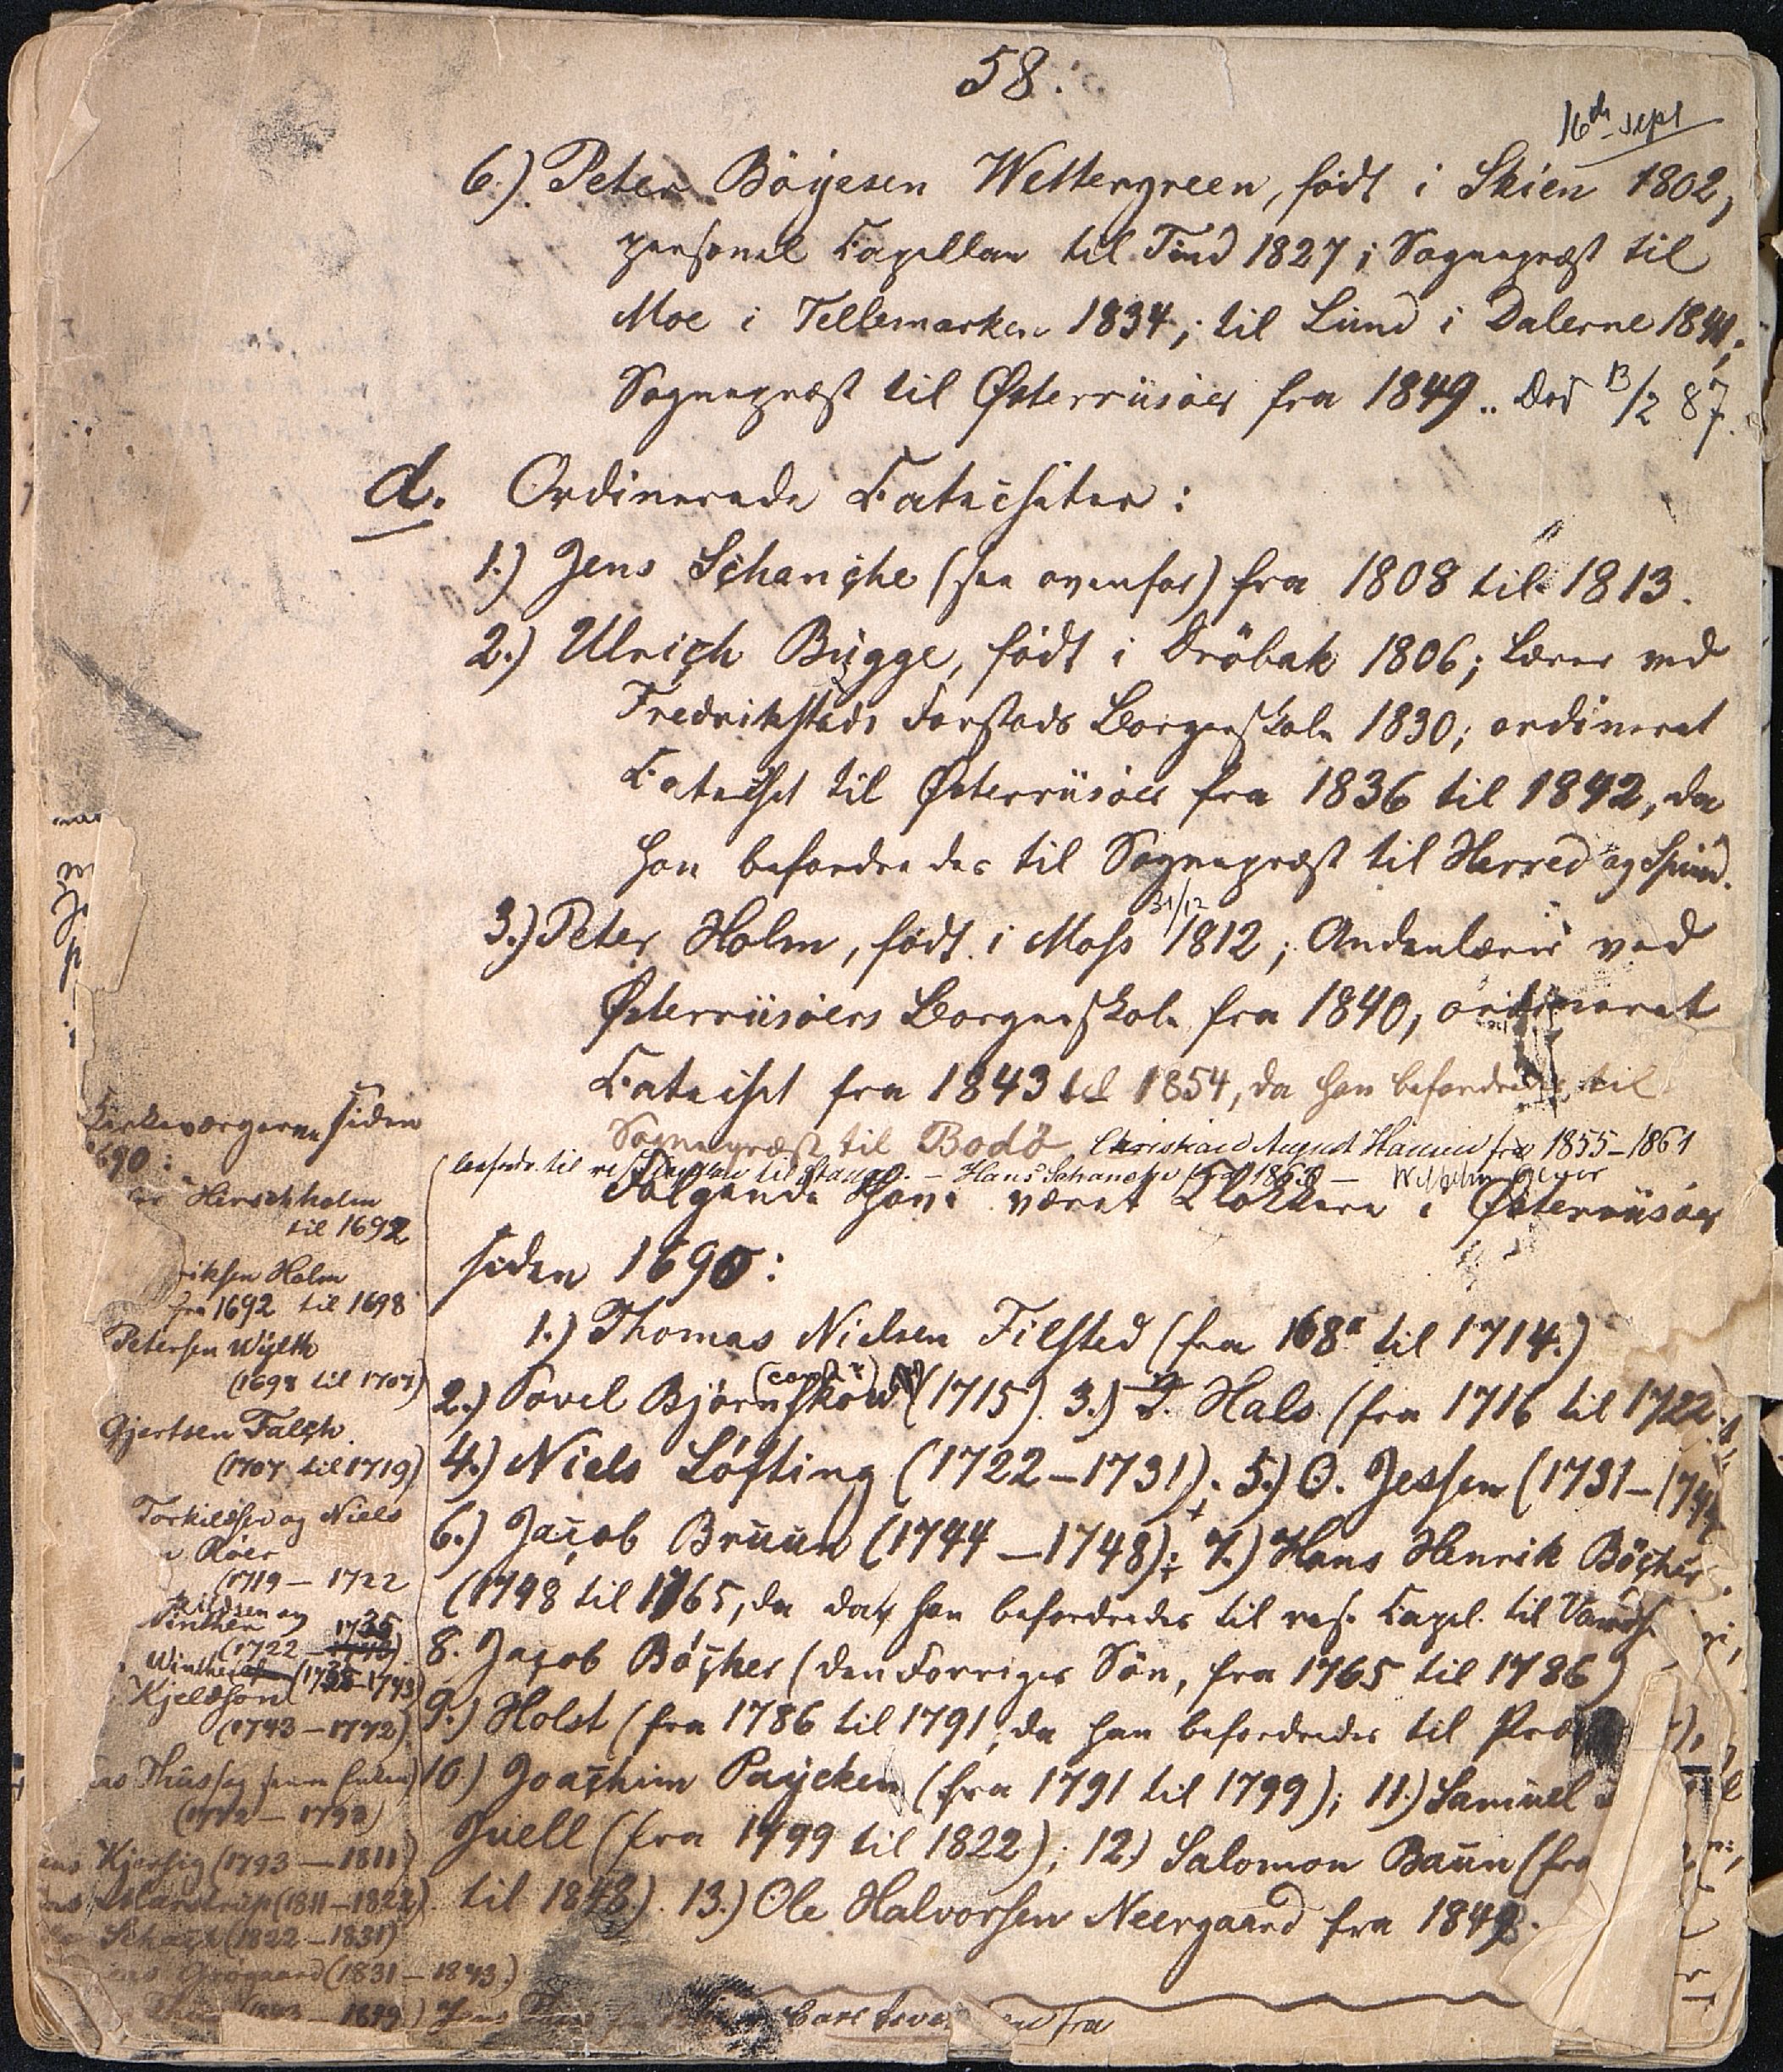 58.
16de sept
6.) Peter Böyesen Wettergreen, födt i Skien 1802,
personel Capellan til Tind 1827; Sognepræst til
Moe i Tellemarken 1834; til Lund i Dalerne 1841;
Sognepræst til Østerriisöer fra 1849.. Död 13/2 87.
d. Ordinerede Catecheter:
1.) Jens Schanche (see ovenfor) fra 1808 til 1813.
2.) Ulrich Bugge, födt i Dröbak 1806; Lærer ved
Fredrikstads Forstads Borgerskole 1830; ordineret
Catechet til Østerriisöer fra 1836 til 1842, da
han befordredes til Sognepræst til Herred og Spind.
3.) Peter Holm, födt i Moss 31/12 1812; Andenlærer ved
Østerriisöers Borgerskole fra 1840, ordineret
Catechet fra 1843 til 1854, da han befordredes til
Sognepræst til Bodö Christian August Hansen fra 1855-1861
(befordr. til res. Capellan til Stange. - Hans Schanche fra 1863 -
Fölgende have været Klokkere i Østerriisöer
siden 1690:
1.) Thomas Nielsen Filsted (fra 168 til 1714.)
2.) Povel Björnskow (1715). 3.) Hals (fra 1716 til 1722.
4.) Niels Löfting (1722-1731). 5.) O. Jessen (1731-1744
6.) Jacob Bruun (1744-1748); 7.) Hans Henrik Böcher
(1748 til 1765, da han befordredes til res. Capel. til
8. Jacob Böcher (den Forriges Sön, fra 1765 til 1786)
9.) Holst (fra 1786 til 1791, da han befordredes til Præ
10.) Joachim Paycken (fra 1791 til 1799); 11.) Samuel
Juell (fra 1799 til 1822); 12.) Salomon Baun (fra
til 1848). 13.) Ole Halvorsen Neergaard fra 1848.
Kirkeværgerne siden
1690:
Herschholm
til 1692
riksen Holm
fra 1692 til 1698
Petersen Wylth
(1698 til 1707)
Gjertsen Falch
(1707 til 1719)
Torkildsen og Niels
Röer
(1719-1722
Winther
(1722-1735
Winther (1735-1743)
Kjeldson
(1743-1772)
(1772-1792)
Kjersig (1793-1811)
Marstrup (1811-1822)
(1822-1831)
Grögaard (1831-1843.)